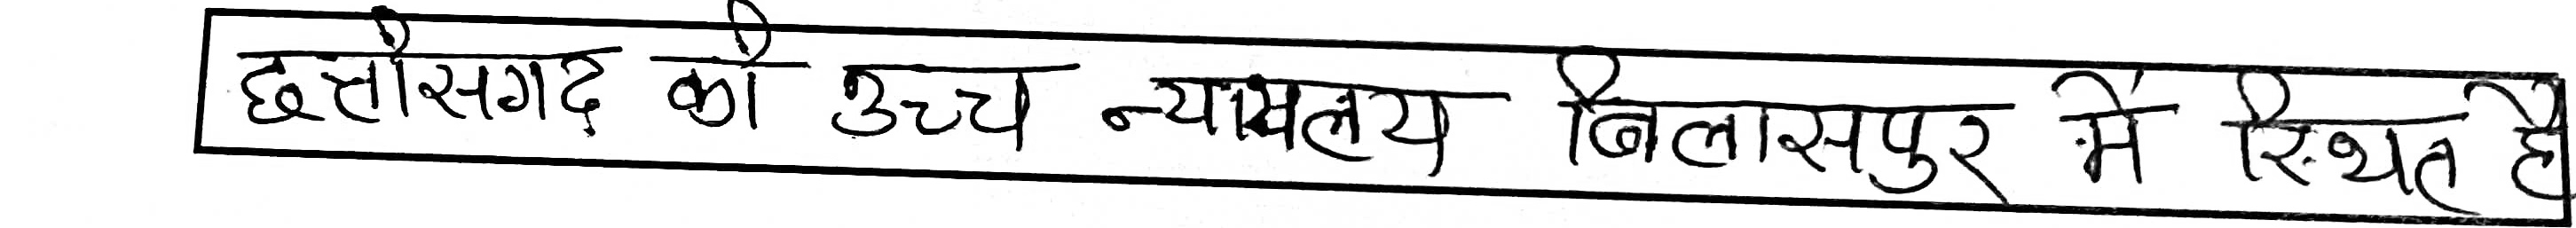 छत्तीसगढ की उच्च न्यायलय बिलासपुर में स्थित है